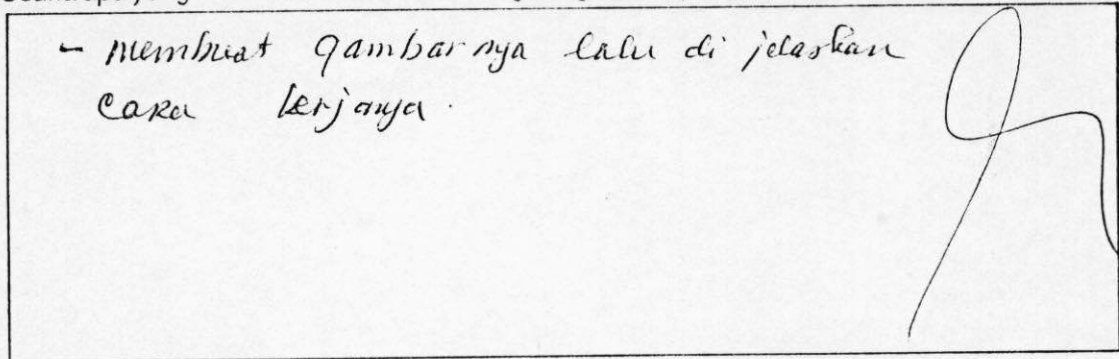 - membuat gambarnya lalu di jelaskan
cara kerjanya.